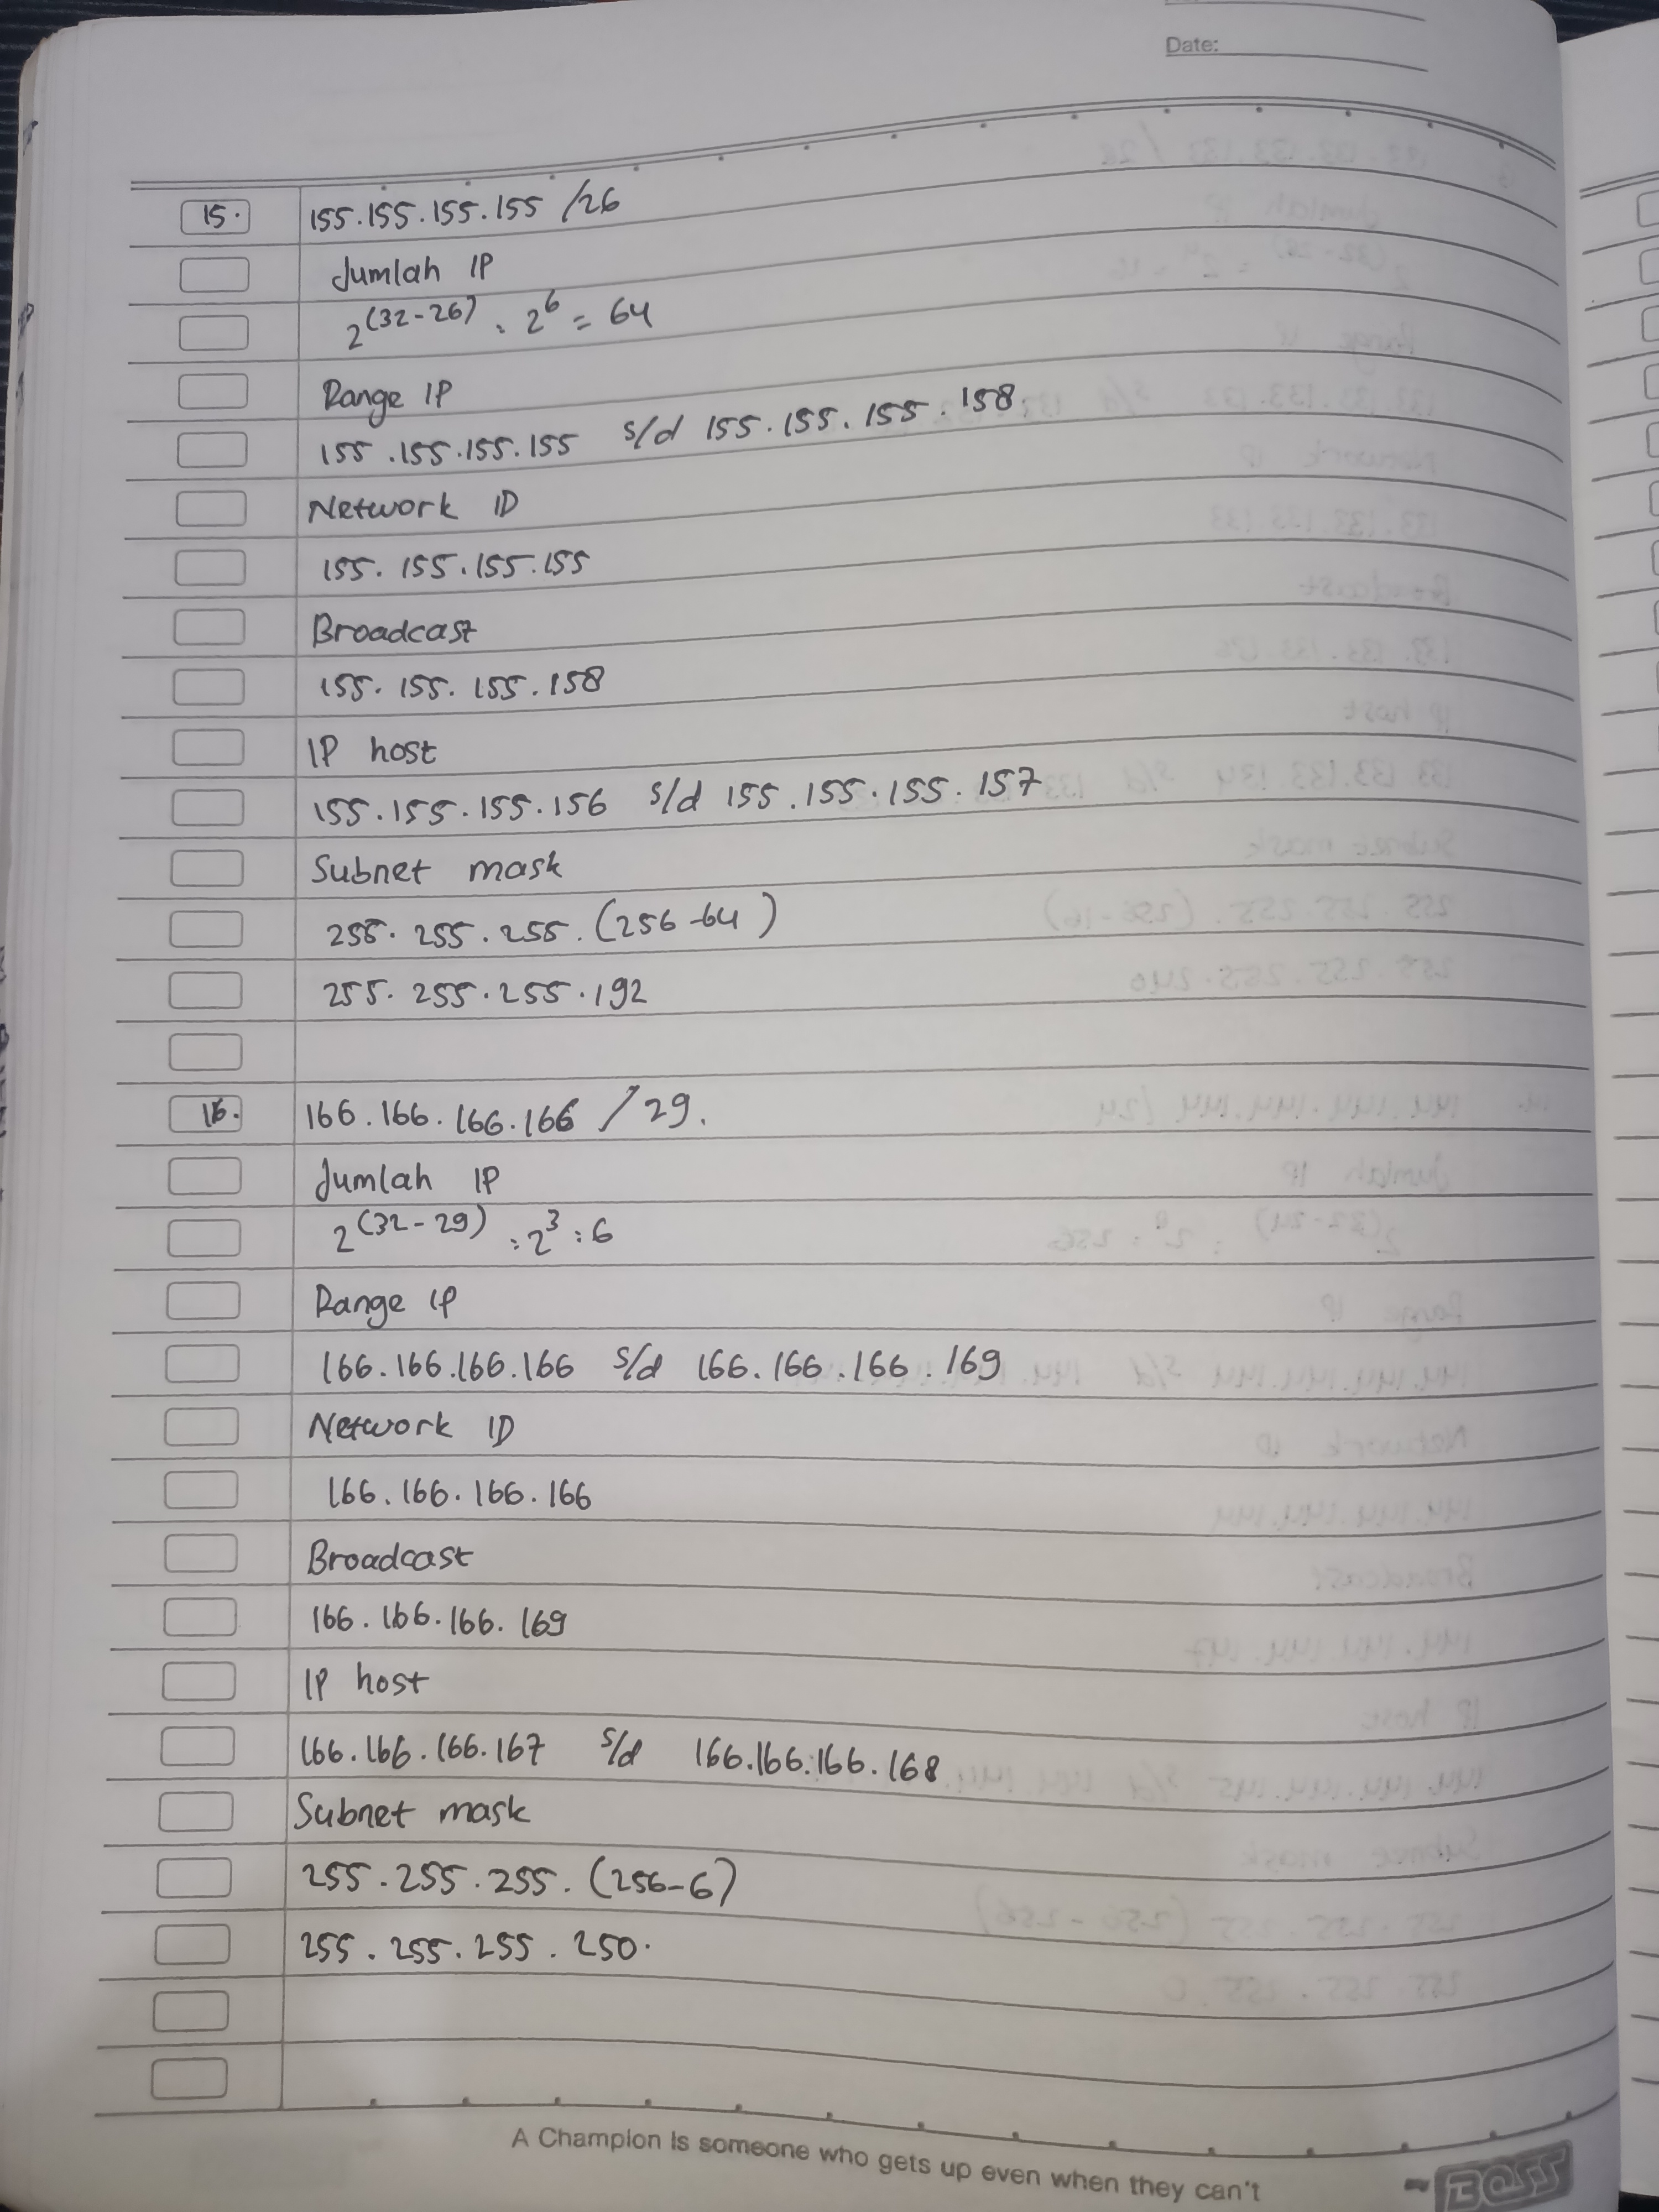 Date:
15. 155.155.155.155 /26
Jumlah IP
2^(32-26) : 2^6 = 64
Range IP
155.155.155.155 s/d 155.155.155.158
Network ID
155.155.155.155
Broadcast
155.155.155.158
IP host
155.155.155.156 s/d 155.155.155.157
Subnet mask
255.255.255.(256-64)
255.255.255.192
16. 166.166.166.166 /29.
Jumlah IP
2^(32-29) : 2^3 : 6
Range IP
166.166.166.166 s/d 166.166.166.169
Network ID
166.166.166.166
Broadcast
166.166.166.169
IP host
166.166.166.167 s/d 166.166.166.168
Subnet mask
255.255.255.(256-6)
255.255.255.250.
A Champion Is someone who gets up even when they can't
BOSS